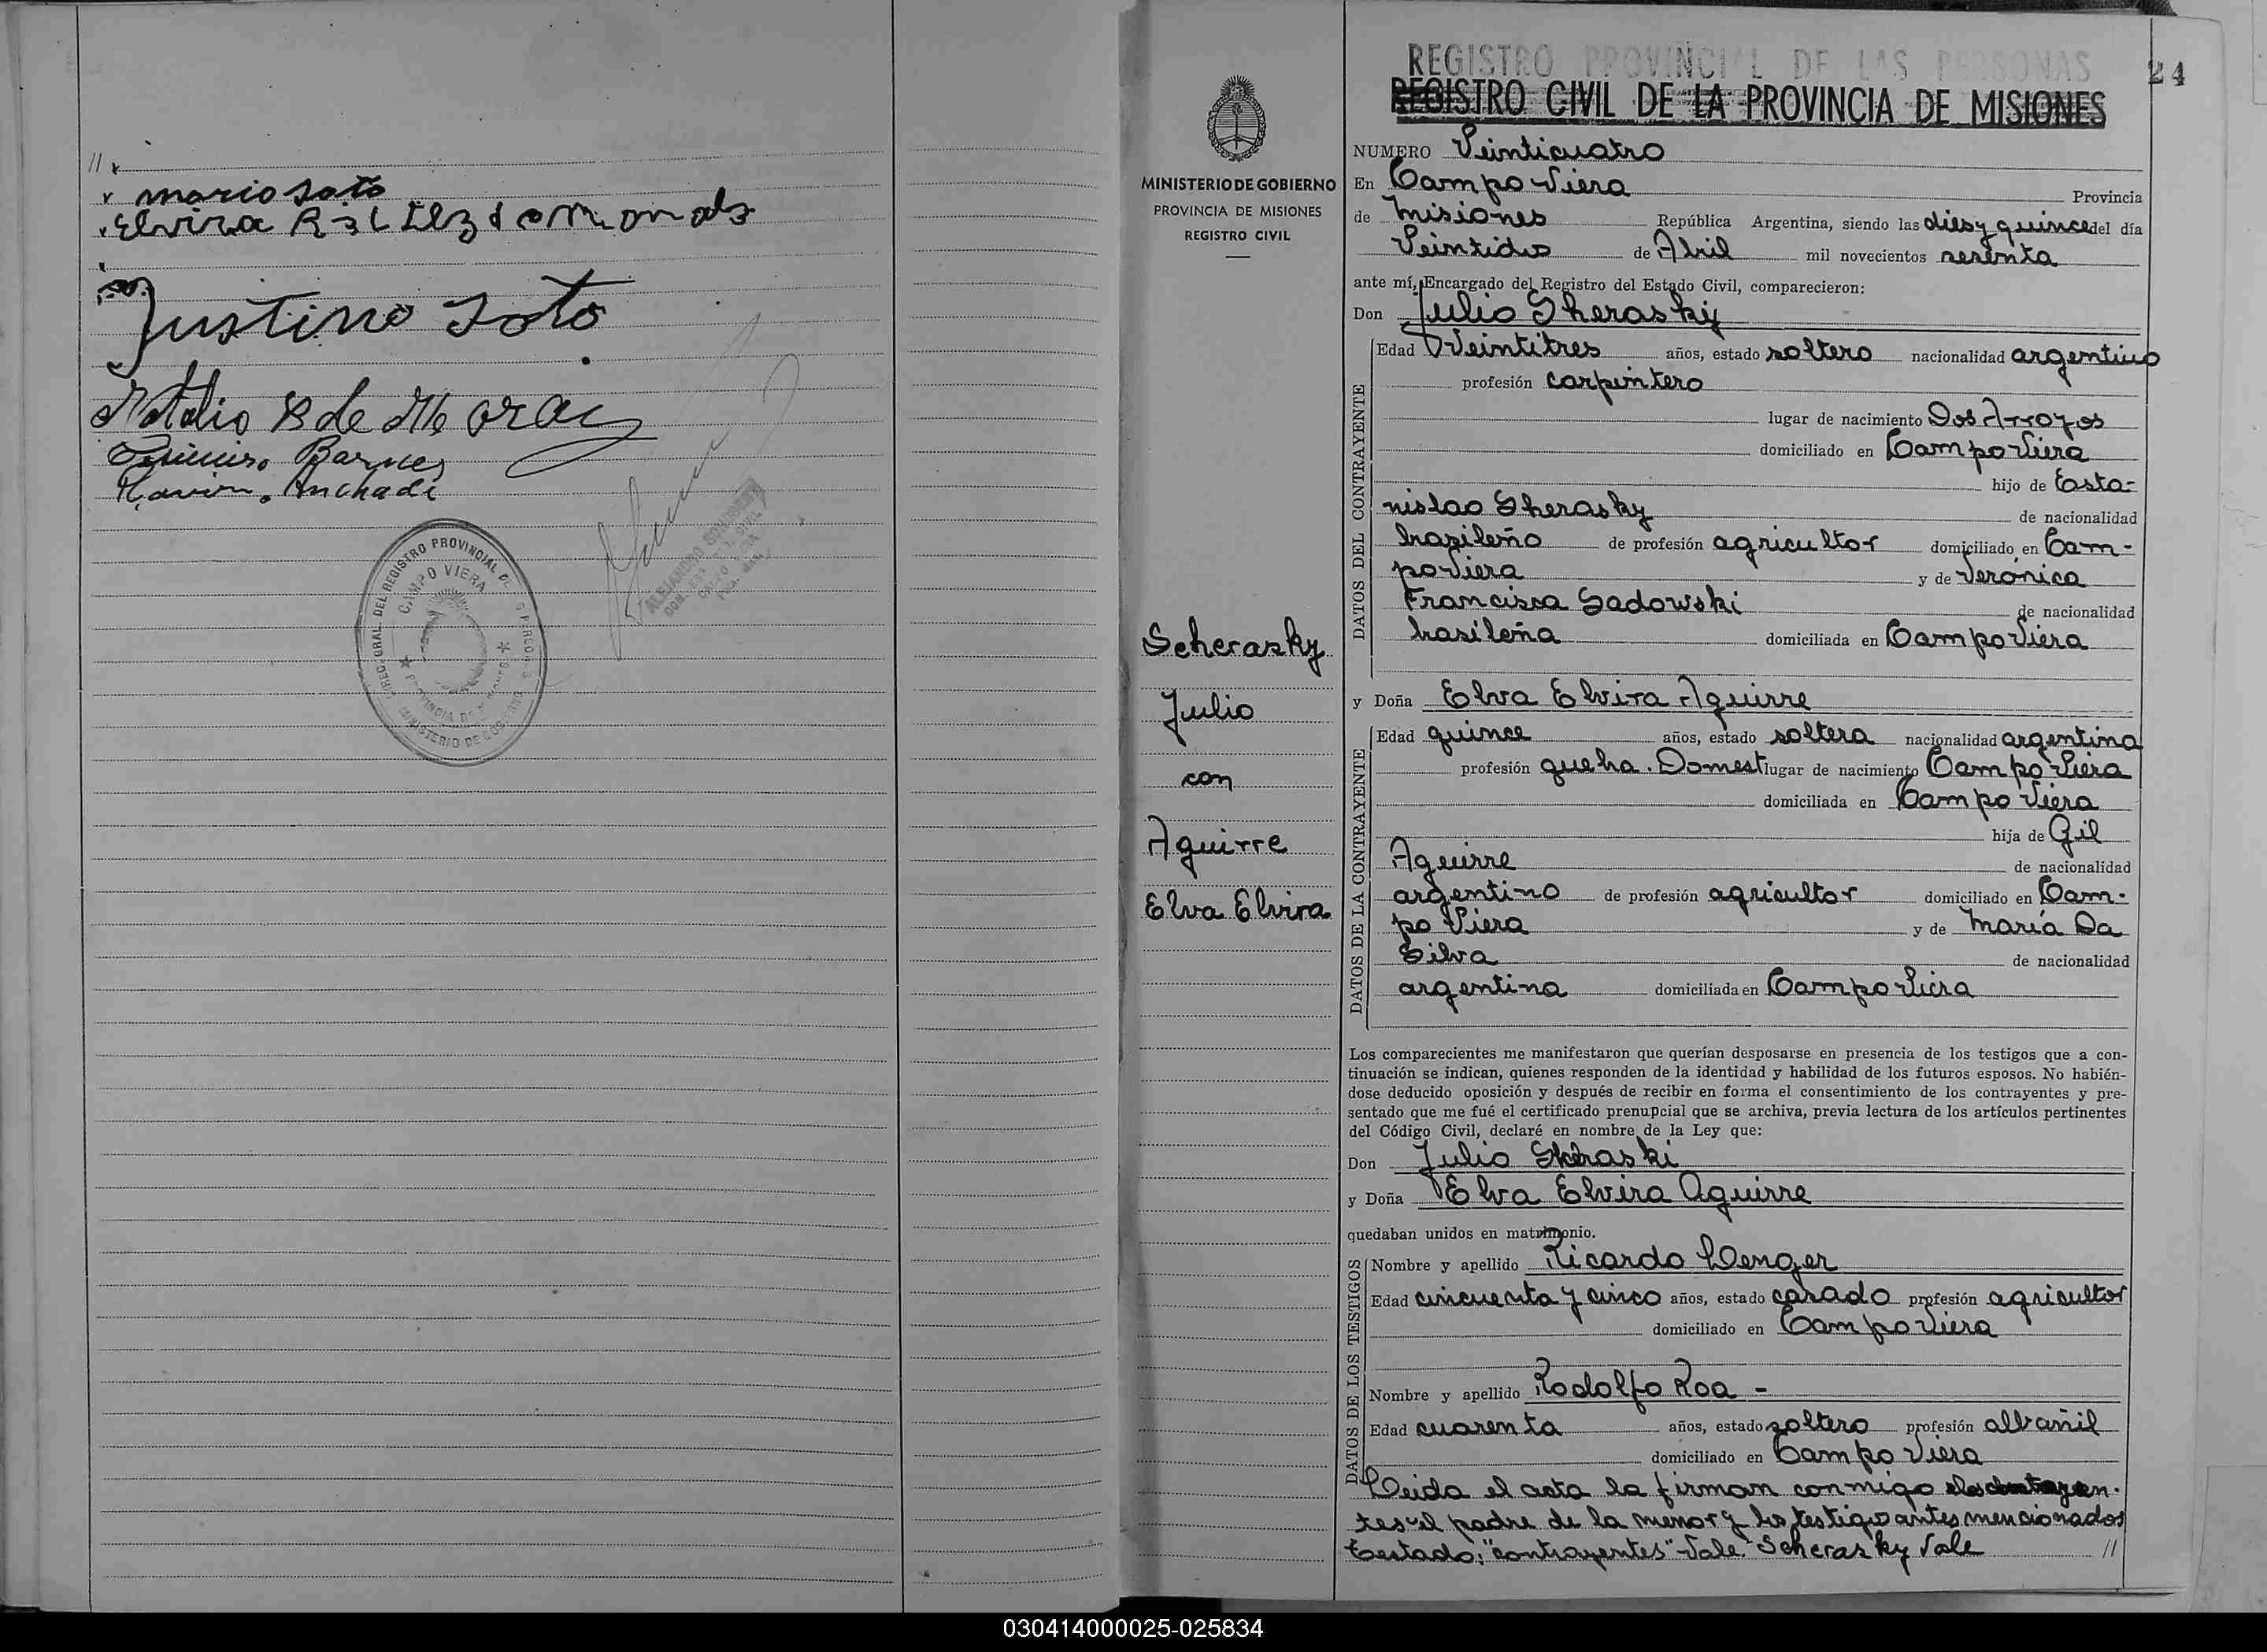 //
mario soto
Elvira
Justino Soto
Natalio
DIREC. GRAL. DEL REGISTRO PROVINCIAL DE
CAMPO VIERA
PROVINCIA DE MISIONES
MINISTERIO DE GOBIERNO
MINISTERIO DE GOBIERNO
PROVINCIA DE MISIONES
REGISTRO CIVIL
Scherasky
Julio
con
Aguirre
Elva Elvira
24
REGISTRO PROVINCIAL DE LAS PERSONAS
REGISTRO CIVIL DE LA PROVINCIA DE MISIONES
NUMERO Veinticuatro
En Campo Viera Provincia
de Misiones República Argentina, siendo las dies y quince del día
Veintidos de Abril mil novecientos sesenta
ante mí, Encargado del Registro del Estado Civil, comparecieron:
Don Julio Sherasky
DATOS DEL CONTRAYENTE
Edad Veintitres años, estado soltero nacionalidad argentino
profesión carpintero
lugar de nacimiento Dos Arroyos
domiciliado en Campo Viera
hijo de Esta-
nislao Sherasky de nacionalidad
brasileño de profesión agricultor domiciliado en Cam-
po Viera y de Verónica
Francisca Sadowski de nacionalidad
brasileña domiciliada en Campo Viera
y Doña Elva Elvira Aguirre
DATOS DE LA CONTRAYENTE
Edad quince años, estado soltera nacionalidad argentina
profesión queha. Domest lugar de nacimiento Campo Viera
domiciliada en Campo Viera
hija de Gil
Aguirre de nacionalidad
argentino de profesión agricultor domiciliado en Cam-
po Viera y de María Da
Silva de nacionalidad
argentina domiciliada en Campo Viera
Los comparecientes me manifestaron que querían desposarse en presencia de los testigos que a con-
tinuación se indican, quienes responden de la identidad y habilidad de los futuros esposos. No habién-
dose deducido oposición y después de recibir en forma el consentimiento de los contrayentes y pre-
sentado que me fué el certificado prenupcial que se archiva, previa lectura de los artículos pertinentes
del Código Civil, declaré en nombre de la Ley que:
Don Julio Sheraski
y Doña Elva Elvira Aguirre
quedaban unidos en matrimonio.
DATOS DE LOS TESTIGOS
Nombre y apellido Ricardo Wenger
Edad cincuenta y cinco años, estado casado profesión agricultor
domiciliado en Campo Viera
Nombre y apellido Rodolfo Roa -
Edad cuarenta años, estado soltero profesión albañil
domiciliado en Campo Viera
Leida el acta la firman conmigo
tes el padre de la menor y los testigos antes mencionados
testado: "contrayentes" Vale - Scherasky Vale //
030414000025-025834